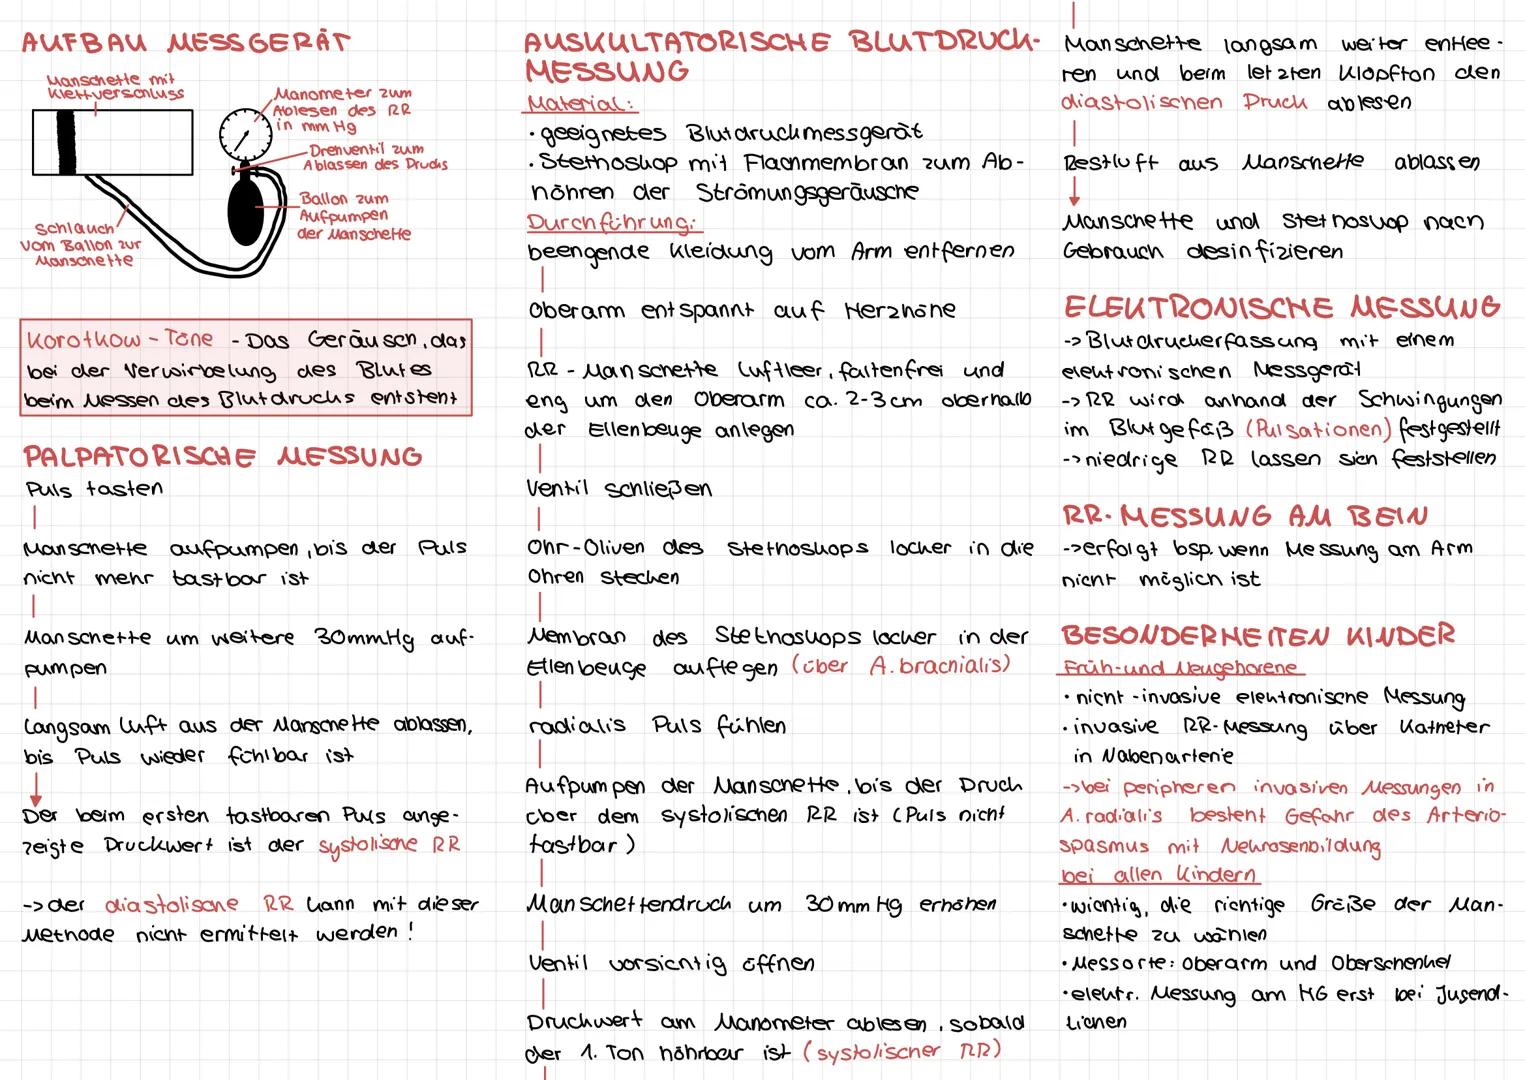 AUFBAU MESSGERÄT
Manschette mit
Klettverschluss
Manometer zum
Ablesen des RR
in mm Hg
Drehventil zum
Ablassen des Drucks
Ballon zum
Aufpumpen
der Manschette
Schlauch
vom Ballon zur
Manschette
Korotkow-Töne - Das Geräusch, das
bei der Verwirbelung des Blutes
beim Messen des Blutdrucks entsteht
PALPATORISCHE MESSUNG
Puls tasten
Manschette aufpumpen, bis der Puls
nicht mehr tastbar ist
Manschette um weitere 30mmHg auf-
pumpen
Langsam Luft aus der Manschette ablassen,
bis Puls wieder fühlbar ist
Der beim ersten tastbaren Puls ange-
zeigte Druckwert ist der systolische RR
-> der diastolische RR kann mit dieser
Methode nicht ermittelt werden!
AUSKULTATORISCHE BLUTDRUCK-
MESSUNG
Material:
· geeignetes Blutdruckmessgerät
· Stethoskop mit Flachmembran zum Ab-
höhren der Strömungsgeräusche
Durchführung:
beengende Kleidung vom Arm entfernen
Oberarm entspannt auf Herzhöhe
RR-Manschette luftleer, faltenfrei und
eng um den Oberarm ca. 2-3cm oberhalb
der Ellenbeuge anlegen
Ventil schließen
Ohr-Oliven des Stethoskops locker in die
Ohren stecken
Membran des Stethoskops locker in der
Ellenbeuge auflegen (über A. brachialis)
radialis Puls fühlen
Aufpumpen der Manschette, bis der Druck
über dem systolischen RR ist (Puls nicht
tastbar)
Manschettendruck um 30mmHg erhöhen
Ventil vorsichtig öffnen
Druckwert am Manometer ablesen, sobald
der 1. Ton höhrbar ist (systolischer RR)
Manschette langsam weiter entlee-
ren und beim letzten Klopfton den
diastolischen Druck ablesen
Restluft aus Manschette ablassen
Manschette und Stethoskop nach
Gebrauch desinfizieren
ELEKTRONISCHE MESSUNG
-> Blutdruckerfassung mit einem
elektronischen Messgerät
-> RR wird anhand der Schwingungen
im Blutgefäß (Pulsationen) festgestellt
-> niedrige RR lassen sich feststellen
RR-MESSUNG AM BEIN
-> erfolgt bsp. wenn Messung am Arm
nicht möglich ist
BESONDERHEITEN KINDER
Früh- und Neugeborene
· nicht-invasive elektronische Messung
· invasive RR-Messung über Katheter
in Nabenarterie
-> bei peripheren invasiven Messungen in
A. radialis besteht Gefahr des Arterio-
spasmus mit Nekrosenbildung
bei allen Kindern
· wichtig, die richtige Größe der Man-
schette zu wählen
· Messorte: Oberarm und Oberschenkel
· elektr. Messung am HG erst bei Jugend-
lichen